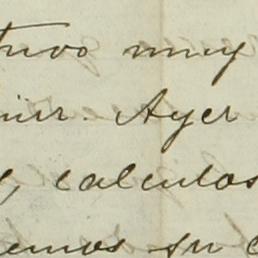 tuvo muy
Ayer
calculos
emos su